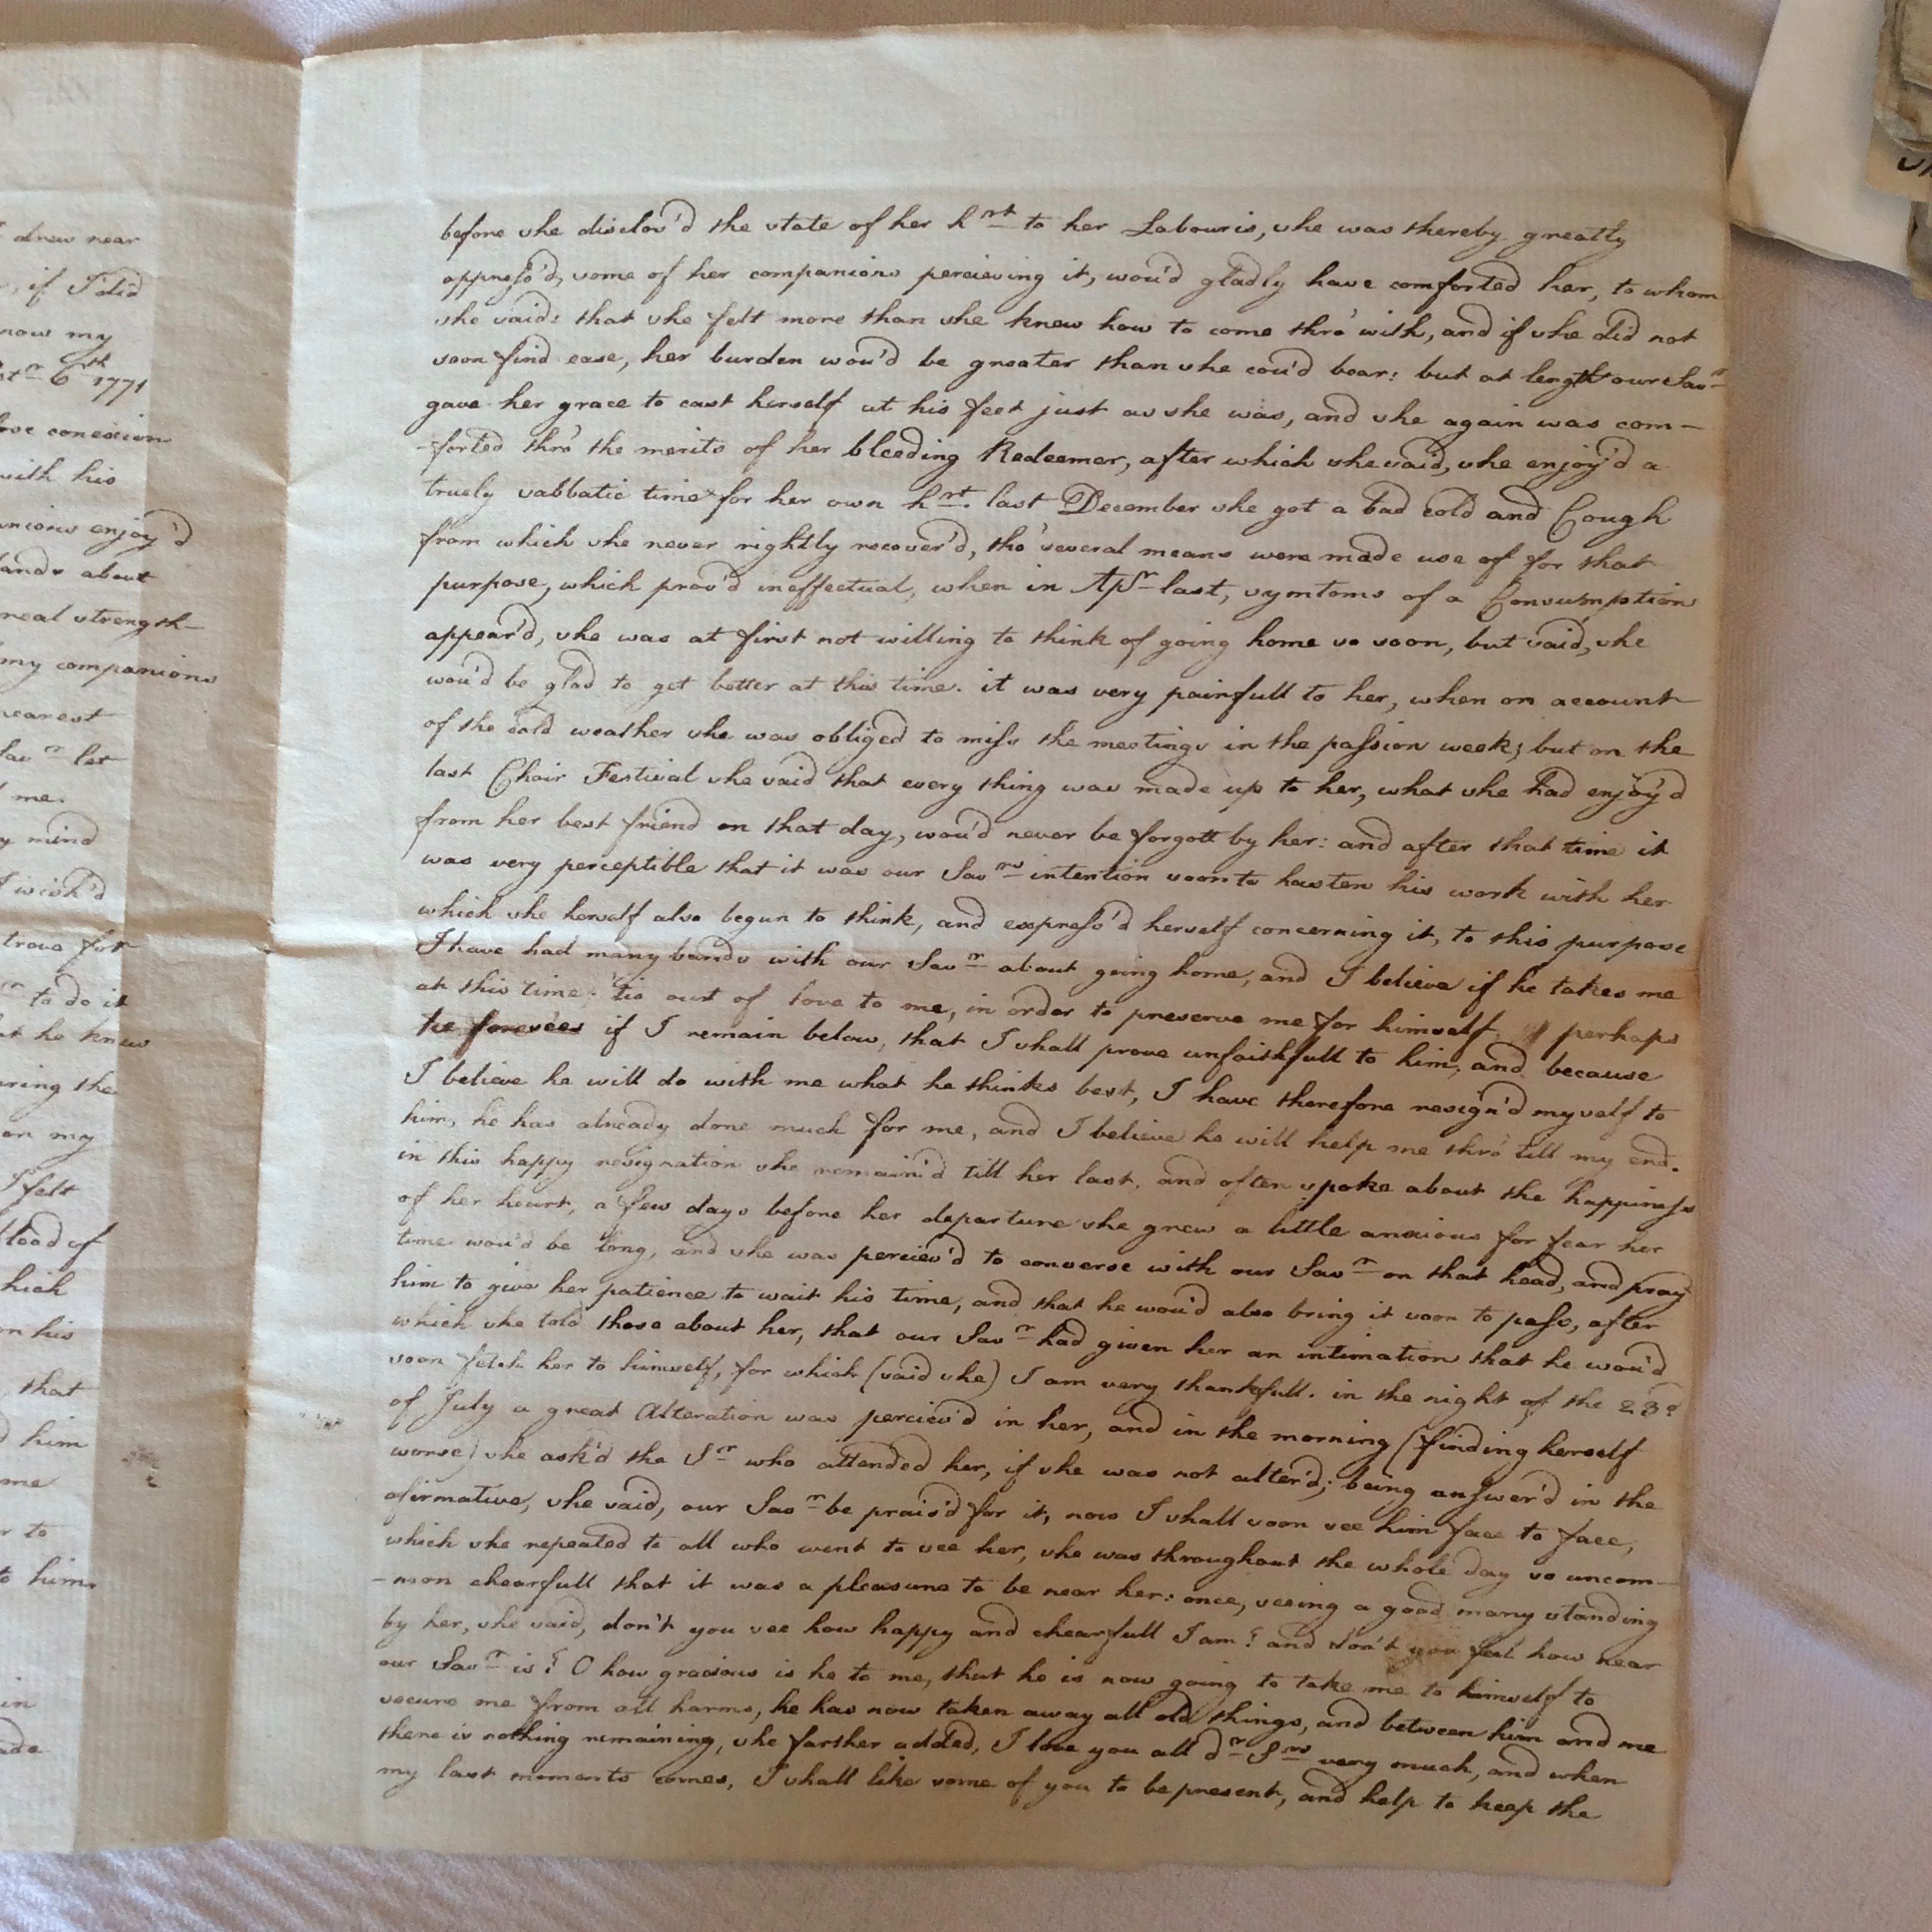 drew near
if I did
now my
6th 1771
conexion
with his
enjoy'd
about
real strength
my companions
nearest
Savr let
me.
mind
I wish'd
to do it
he knew
during the
on my
I felt
stead of
hich
on his
that
him
me
to
to him
in
before she disclos'd the state of her hrt to her Labouris, she was thereby greatly
oppress'd, some of her companions percieving it, wou'd gladly have comforted her, to whom
she said: that she felt more than she knew how to come thro' with, and if she did not
soon find ease, her burden wou'd be greater than she cou'd bear: but at length our Savr
gave her grace to cast herself at his feet just as she was, and she again was com-
-forted thro' the merits of her bleeding Redeemer, after which she said, she enjoy'd a
truely sabbatic time for her own hrt. last December she got a bad cold and Cough
from which she never rightly recover'd, tho' several means were made use of for that
purpose, which prov'd ineffectual, when in Apr last, symtoms of a Consumption
appear'd, she was at first not willing to think of going home so soon, but said, she
wou'd be glad to get better at this time. it was very painfull to her, when on account
of the cold weather she was obliged to miss the meetings in the passion week; but on the
last Choir Festival she said that every thing was made up to her, what she had enjoy'd
from her best friend on that day, wou'd never be forgott by her: and after that time it
was very perceptible that it was our Savrs intention soon to hasten his work with her
which she herself also begun to think, and express'd herself concerning it, to this purpose
I have had many bands with our Savr about going home, and I believe if he takes me
at this time 'tis out of love to me, in order to preserve me for himself, perhaps
he foresees if I remain below, that I shall prove unfaithfull to him, and because
I believe he will do with me what he thinks best, I have therefore resign'd myself to
him, he has already done much for me, and I believe he will help me thro' till my end.
in this happy resignation she remain'd till her last, and often spoke about the happiness
of her heart, a few days before her departure she grew a little anxious for fear her
time wou'd be long, and she was perciev'd to converse with our Savr on that head, and pray
him to give her patience to wait his time, and that he wou'd also bring it soon to pass, after
which she told those about her, that our Savr had given her an intimation that he wou'd
soon fetch her to himself, for which (said she) I am very thankfull. in the night of the 23d
of July a great Alteration was perciev'd in her, and in the morning (finding herself
worse) she ask'd the Sr who attended her, if she was not alter'd; being answer'd in the
afirmative, she said, our Savr be prais'd for it, now I shall soon see him face to face,
which she repeated to all who went to see her, she was throughout the whole day so uncom-
-mon chearfull that it was a pleasure to be near her: once, seeing a good many standing
by her, she said, don't you see how happy and chearfull I am? and don't you feel how near
our Savr is? O how gracious is he to me, that he is now going to take me to himself to
secure me from all harms, he has now taken away all old things, and between him and me
there is nothing remaining, she farther added, I love you all dr Srs very much, and when
my last moments comes, I shall like some of you to be present, and help to keep the